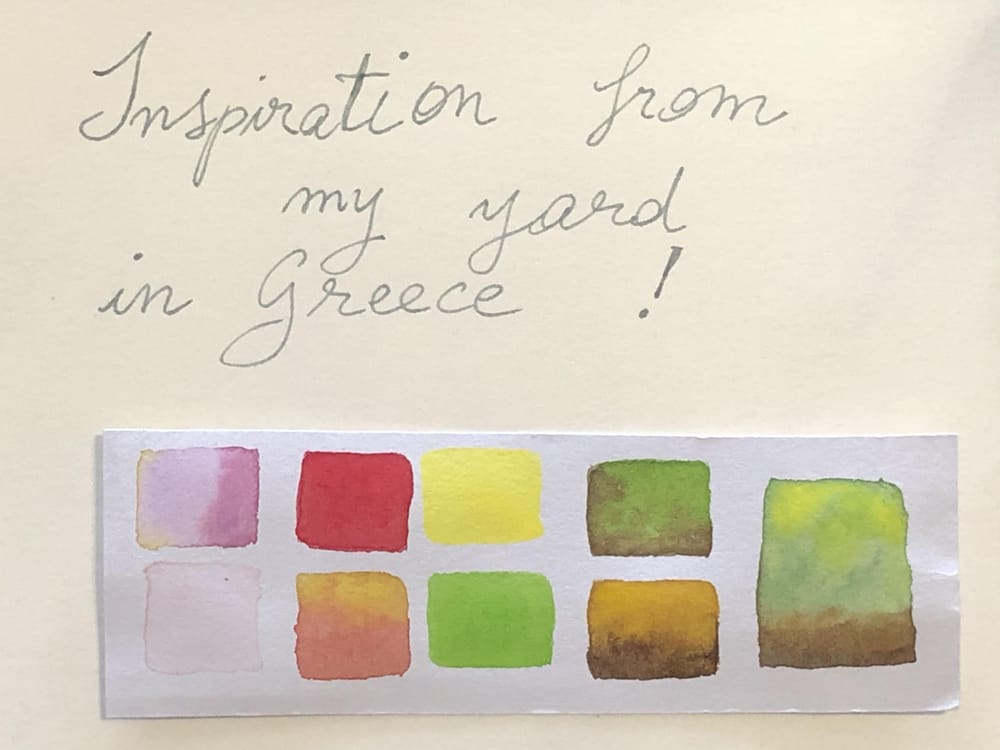 Inspiration from
my yard
in Greece !